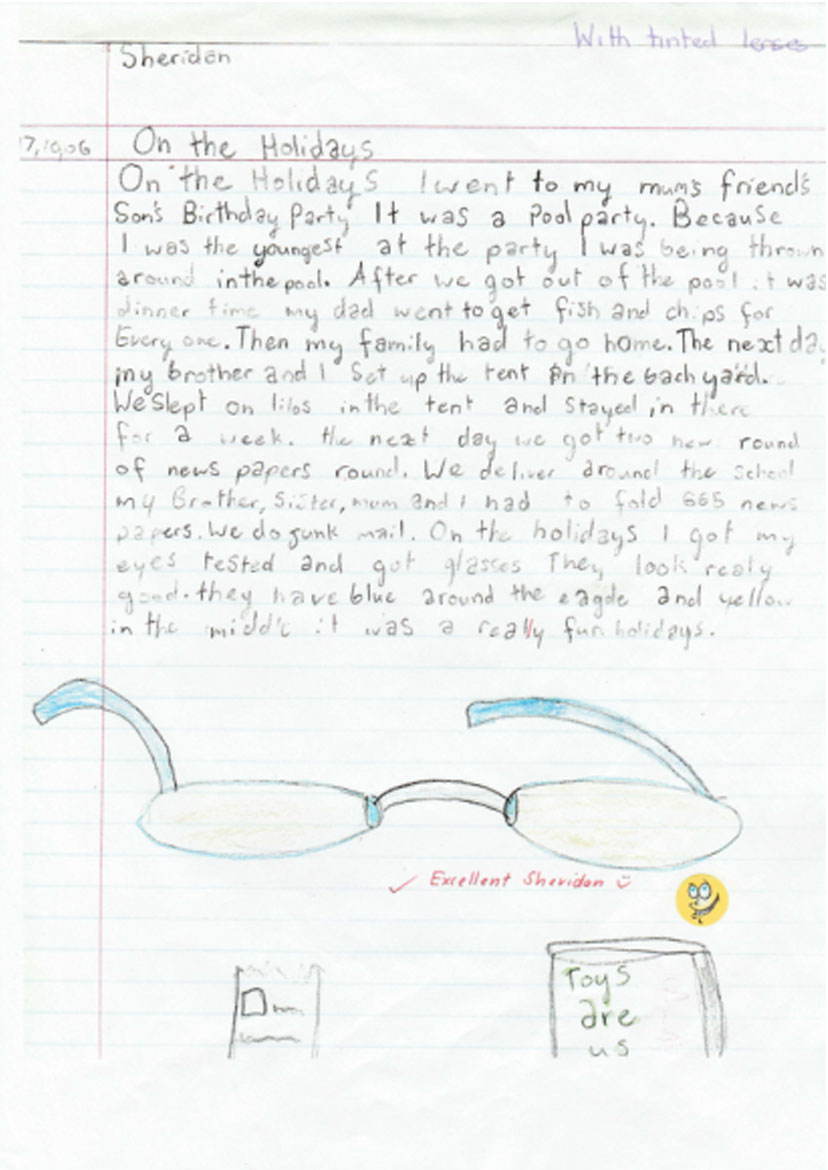 With tinted lenses
Sheridan
On the Holidays
On the Holidays I went to my mum's friend's
Son's Birthday Party It was a Pool party. Because
I was the youngest at the party I was being thrown
around in the pool. After we got out of the pool it was
dinner time my dad went to get fish and chips for
Every one. Then my family had to go home. The next da
my brother and I Set up the tent in the back yard.
We slept on lilos in the tent and stayed in there
for a week. the next day we got two new round
of news papers round. We deliver around the school
my Brother, Sister, mum and I had to fold 665 news
papers. We do junk mail. On the holidays I got my
eyes tested and got glasses They look realy
good. they have blue around the eagde and yellow
in the middle it was a really fun holidays.
Excellent Sheridan
Toys
are
us